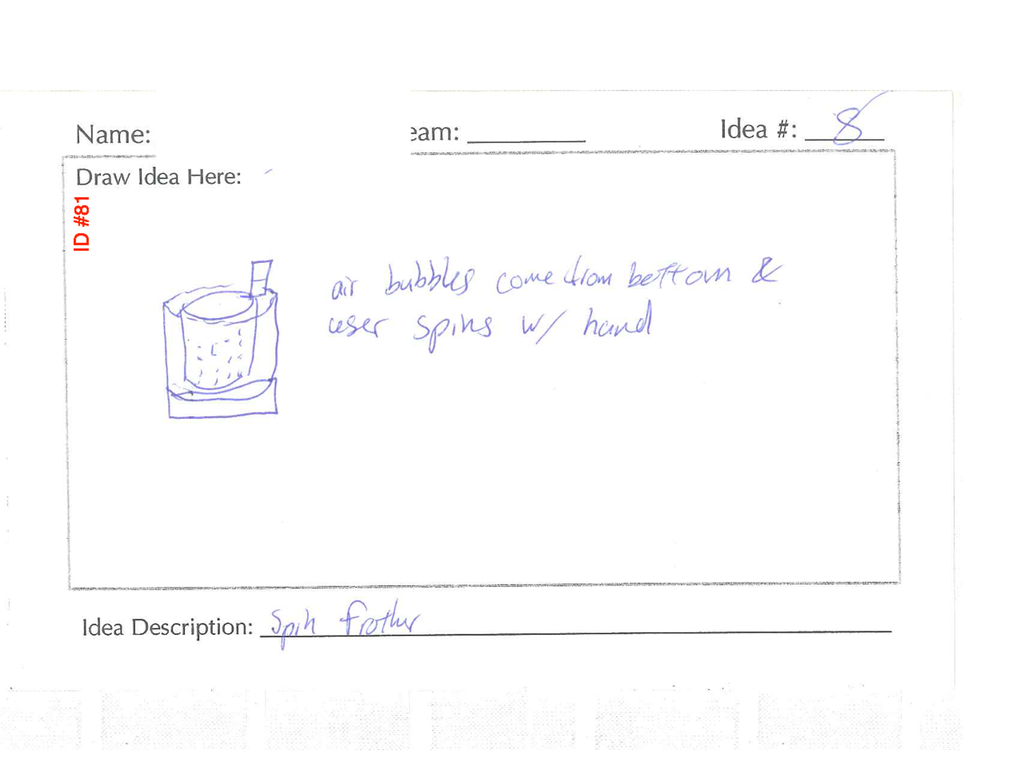 Name:
eam:
Idea #: 8
Draw Idea Here:
ID #81
air bubbles come from bottom &
user spins w/ hand
Idea Description: Spin frother